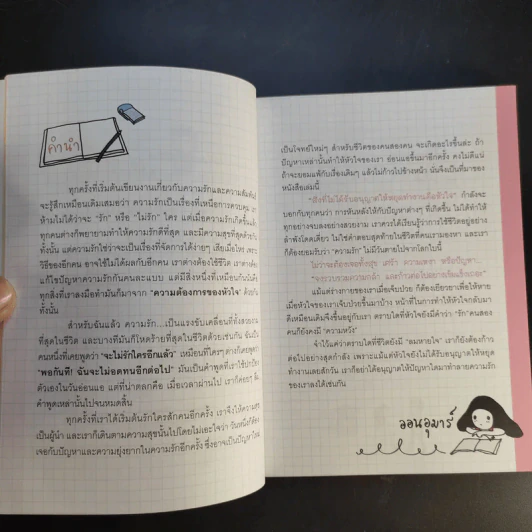 คำนำ
ทุกครั้งที่เริ่มต้นเขียนงานเกี่ยวกับความรักและความสัมพันธ์
จะรู้สึกเหมือนเดิมเสมอว่า ความรักเป็นเรื่องที่เหนือการควบคุม
ห้ามไม่ได้ว่าจะ "รัก" หรือ "ไม่รัก" ใคร แต่เมื่อความรักเกิดขึ้นแล้ว
ทุกคนต่างก็พยายามทำให้ความรักดีที่สุด และมีความสุขที่สุดด้วยกัน
ทั้งนั้น แต่ความรักใช่ว่าจะเป็นเรื่องที่จัดการได้ง่ายๆ เสียเมื่อไหร่ เพราะ
วิธีของอีกคน อาจใช้ไม่ได้ผลกับอีกคน เราต่างต้องใช้ชีวิต เราต่างต้อง
แก้ไขปัญหาความรักกันคนละแบบ แต่มีสิ่งหนึ่งที่เหมือนกันนั่นคือ
ทุกสิ่งที่เราลงมือทำมันก็มาจาก "ความต้องการของหัวใจ" ด้วยกัน
ทั้งนั้น
สำหรับฉันแล้ว ความรัก...เป็นแรงขับเคลื่อนที่ทั้งสวยงาม
ที่สุดในชีวิต และบางทีมันก็โหดร้ายที่สุดในชีวิตด้วยเช่นกัน ฉันเป็น
คนหนึ่งที่เคยพูดว่า "จะไม่รักใครอีกแล้ว" เหมือนที่ใครๆ ต่างก็เคยพูด
"พอกันที! ฉันจะไม่อดทนอีกต่อไป" มันเป็นคำพูดที่เราใช้ปกป้อง
ตัวเองในวันอ่อนแอ แต่ที่น่าตลกคือ เมื่อเวลาผ่านไป เราก็ค่อยๆ ลืม
คำพูดเหล่านั้นไปจนหมดสิ้น
ทุกครั้งที่เราได้เริ่มต้นรักใครสักคนอีกครั้ง เราจึงให้ความสุข
เป็นผู้นำ และเราก็เดินตามความสุขนั้นไปโดยไม่เอะใจว่า วันหนึ่งก็ต้อง
เจอกับปัญหาและความยุ่งยากในความรักอีกครั้ง ซึ่งอาจเป็นปัญหาใหม่
เป็นโจทย์ใหม่ๆ สำหรับชีวิตของคนสองคน จะเกิดอะไรขึ้นล่ะ ถ้า
ปัญหาเหล่านั้นทำให้หัวใจของเรา อ่อนแอขึ้นมาอีกครั้ง คงไม่ดีแน่
ถ้าจะยอมแพ้กับเรื่องเดิมๆ แล้วก้าวไปข้างหน้า นั่นจึงเป็นที่มาของ
หนังสือเล่มนี้
"สิ่งที่ไม่ได้รับอนุญาตให้หยุดทำงานคือหัวใจ" กำลังจะ
บอกกับทุกคนว่า การหันหลังให้กับปัญหาต่างๆ ที่เกิดขึ้น ไม่ได้ทำให้
ทุกอย่างจบลงอย่างสวยงาม เราควรได้เรียนรู้ว่าการใช้ชีวิตอยู่อย่าง
ลำพังโดดเดี่ยว ไม่ใช่คำตอบสุดท้ายในชีวิตที่คนเรามองหา และเรา
ก็ต้องยอมรับว่า "ความรัก" ไม่มีวันตายไปจากโลกใบนี้
ไม่ว่าจะต้องเจอทั้งสุข เศร้า ความเหงา หรือปัญหา...
"จงรวบรวมความกล้า และก้าวต่อไปอย่างเข้มแข็งเถอะ"
แม้แต่ร่างกายของเราเมื่อเจ็บป่วย ก็ต้องเยียวยาเพื่อให้หาย
เมื่อหัวใจของเราเจ็บป่วยขึ้นมาบ้าง หน้าที่ในการทำให้หัวใจกลับมา
ดีเหมือนเดิมจึงขึ้นอยู่กับเรา ตราบใดที่หัวใจยังมีคำว่า "รัก" คนสอง
คนก็ยังคงมี "ความหวัง"
จำไว้แค่ว่าตราบใดที่ชีวิตยังมี "ลมหายใจ" เราก็ยังต้องก้าว
ต่อไปอย่างสุดกำลัง เพราะแม้แต่หัวใจยังไม่ได้รับอนุญาตให้หยุด
ทำงานเลยสักวัน เราก็อย่าได้อนุญาตให้ปัญหาใดมาทำลายความรัก
ของเราลงได้เช่นกัน
ออนอุมาร์